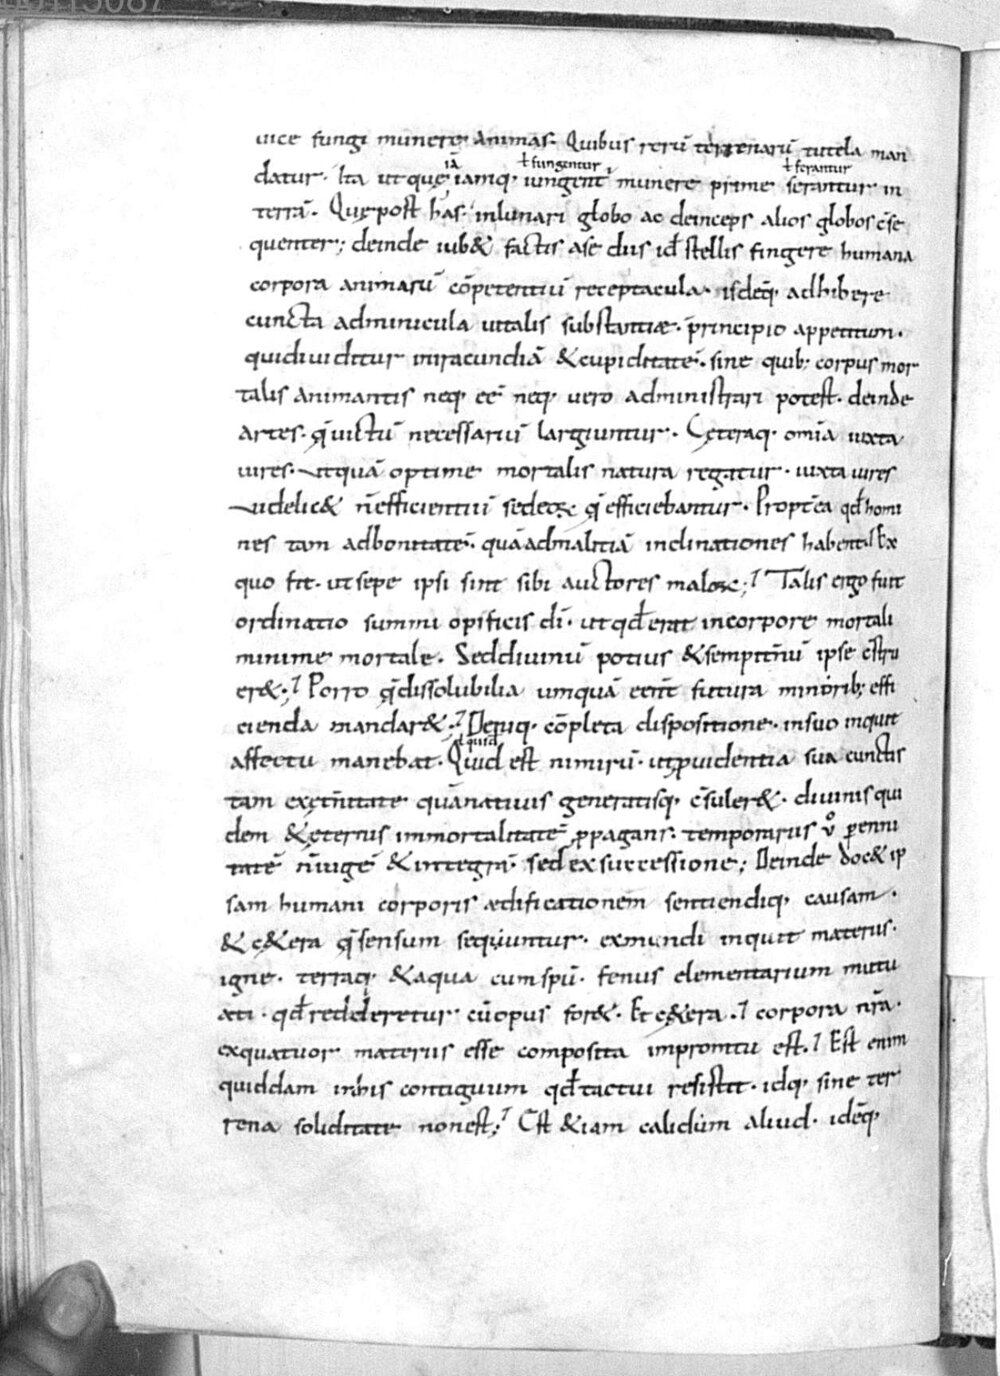 uice fungi munere animas. Quibus rerū terrenarū tutela man
iā ƚ fungentur ƚ ferantur
datur. Ita ut quę iamq; iungent munere prime serantur in
terrā. Quę post has in lunari globo ac deinceps alios globos c̄se
quenter; deinde iub& factis a se diis id ē stellis fingere humana
corpora animarū cōpetentiū receptacula. isdēq; adhibere
cuncta adminicula uitalis substantiæ. principio appetitum.
qui diuiditur in iracundiā & cupiditatē. sine quib; corpus mor
talis animantis neq; eē neq; uero administrari potest. deinde
artes. q̄ uictū necessariū largiuntur. Cęteraq; omia iuxta
uires. utquā optime mortalis natura regatur. iuxta uires
uidelic& n̄ efficientiū sed eoꝝ q̄ efficiebantur. Propt̄ea qd̄ homi
nes tam ad bonitatē. quā ad malitiā inclinationes habent. Ex
quo fit. ut sepe ipsi sint sibi auctores maloꝝ; Talis ergo fuit
ordinatio summi opificis dī. ut qd̄ erat in corpore mortali
minime mortale. Sed diuinū potius & sempit̄nū ipse c̄stru
er&. Porro q̄ dissolubilia umquā eēnt futura minorib; effi
cienda mandar&. Deniq; cōpleta dispositione. in suo inquit
ƚ quid
affectu manebat. Quid est nimirū. ut p̱uidentia sua cunctis
tam ex ęt̄nitate quā natiuis generatisq; c̄suler&. diuinis qui
dem & ęternis immortalitatē p̱pagans. temporariis ů perenni
tatē n̄ iugē & integrā. sed ex successione; Deinde doc& ip
sam humani corporis ædificationem sentiendiq; causam.
& c&era q̄ sensum sequuntur. ex mundi inquit materiis.
igne. terraq; & aqua cum spū. fenus elementarium mutu
ati. qd̄ redderetur cū opus for&. Et c&era. corpora nr̄a.
ex quatuor materiis esse composita impromtu est. Est enim
quiddam in his contiguum qd̄ tactui resistit. idq; sine ter
rena soliditate non est; Est &iam calidum aliud. idēq;